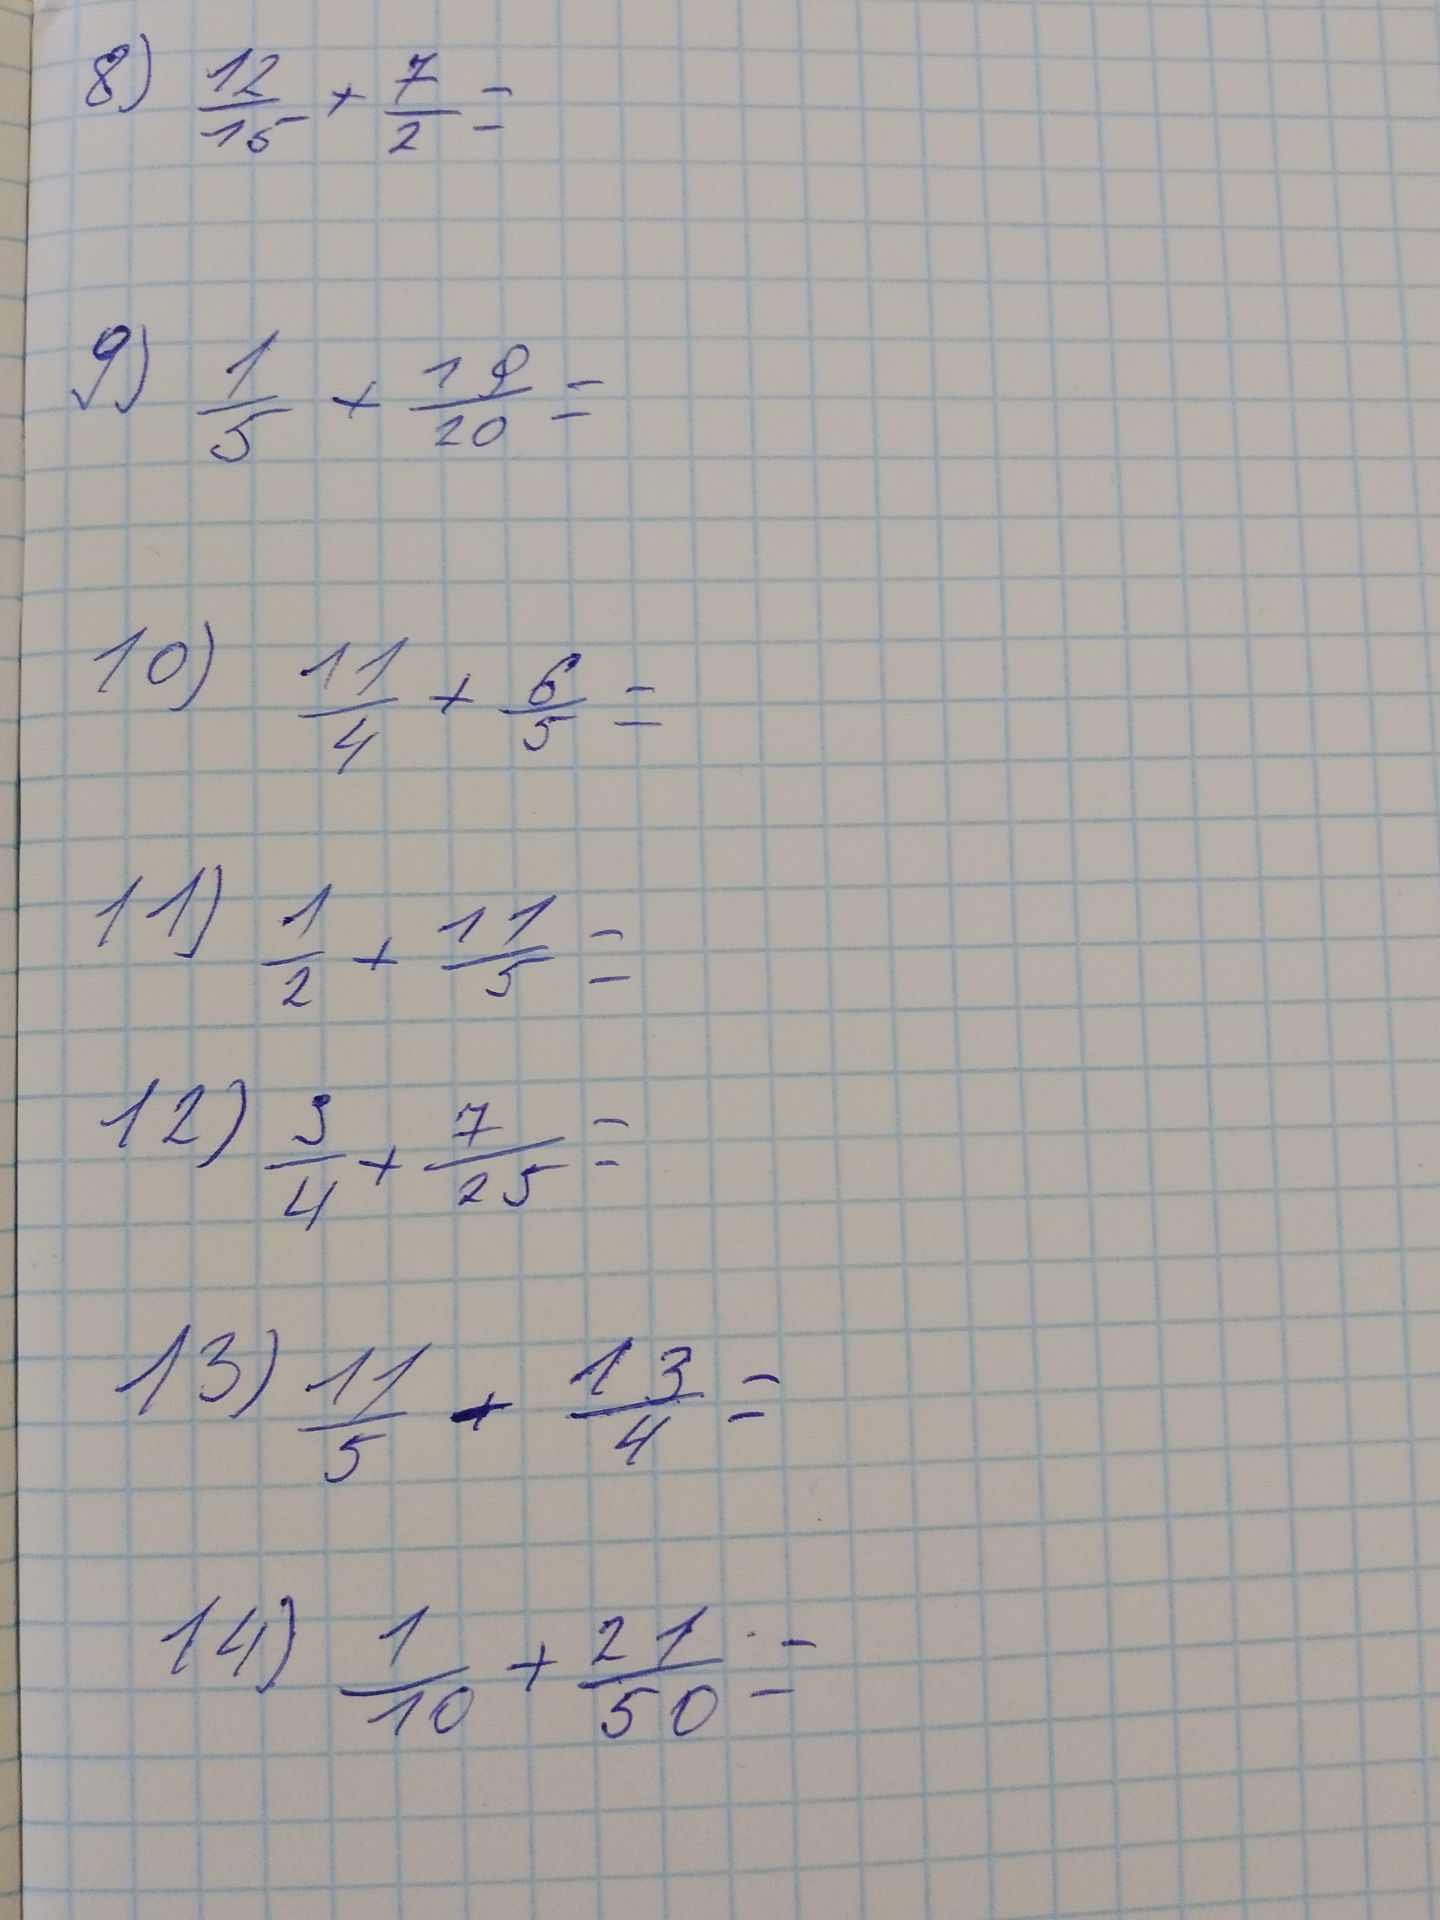 8) 12/15 + 7/2 =
9) 1/5 + 19/20 =
10) 11/4 + 6/5 =
11) 1/2 + 11/5 =
12) 3/4 + 7/25 =
13) 11/5 + 13/4 =
14) 1/10 + 21/50 =